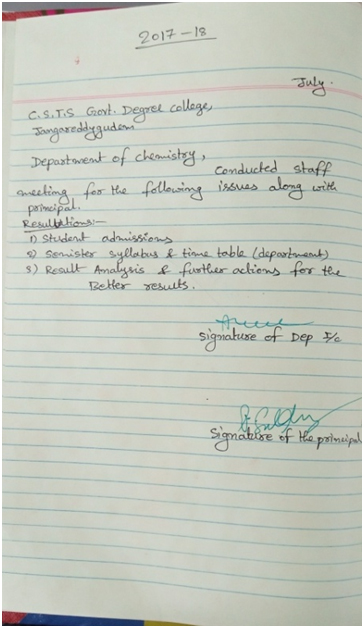 2017-18
July.
C.S.T.S Govt. Degree college,
Jangareddygudem
Department of chemistry,
conducted staff
meeting for the following issues along with
principal.
1) Student admissions
2) Semister syllabus & time table (department)
3) Result Analysis & further actions for the
Better results.
Signature of Dep I/c
Signature of the principal